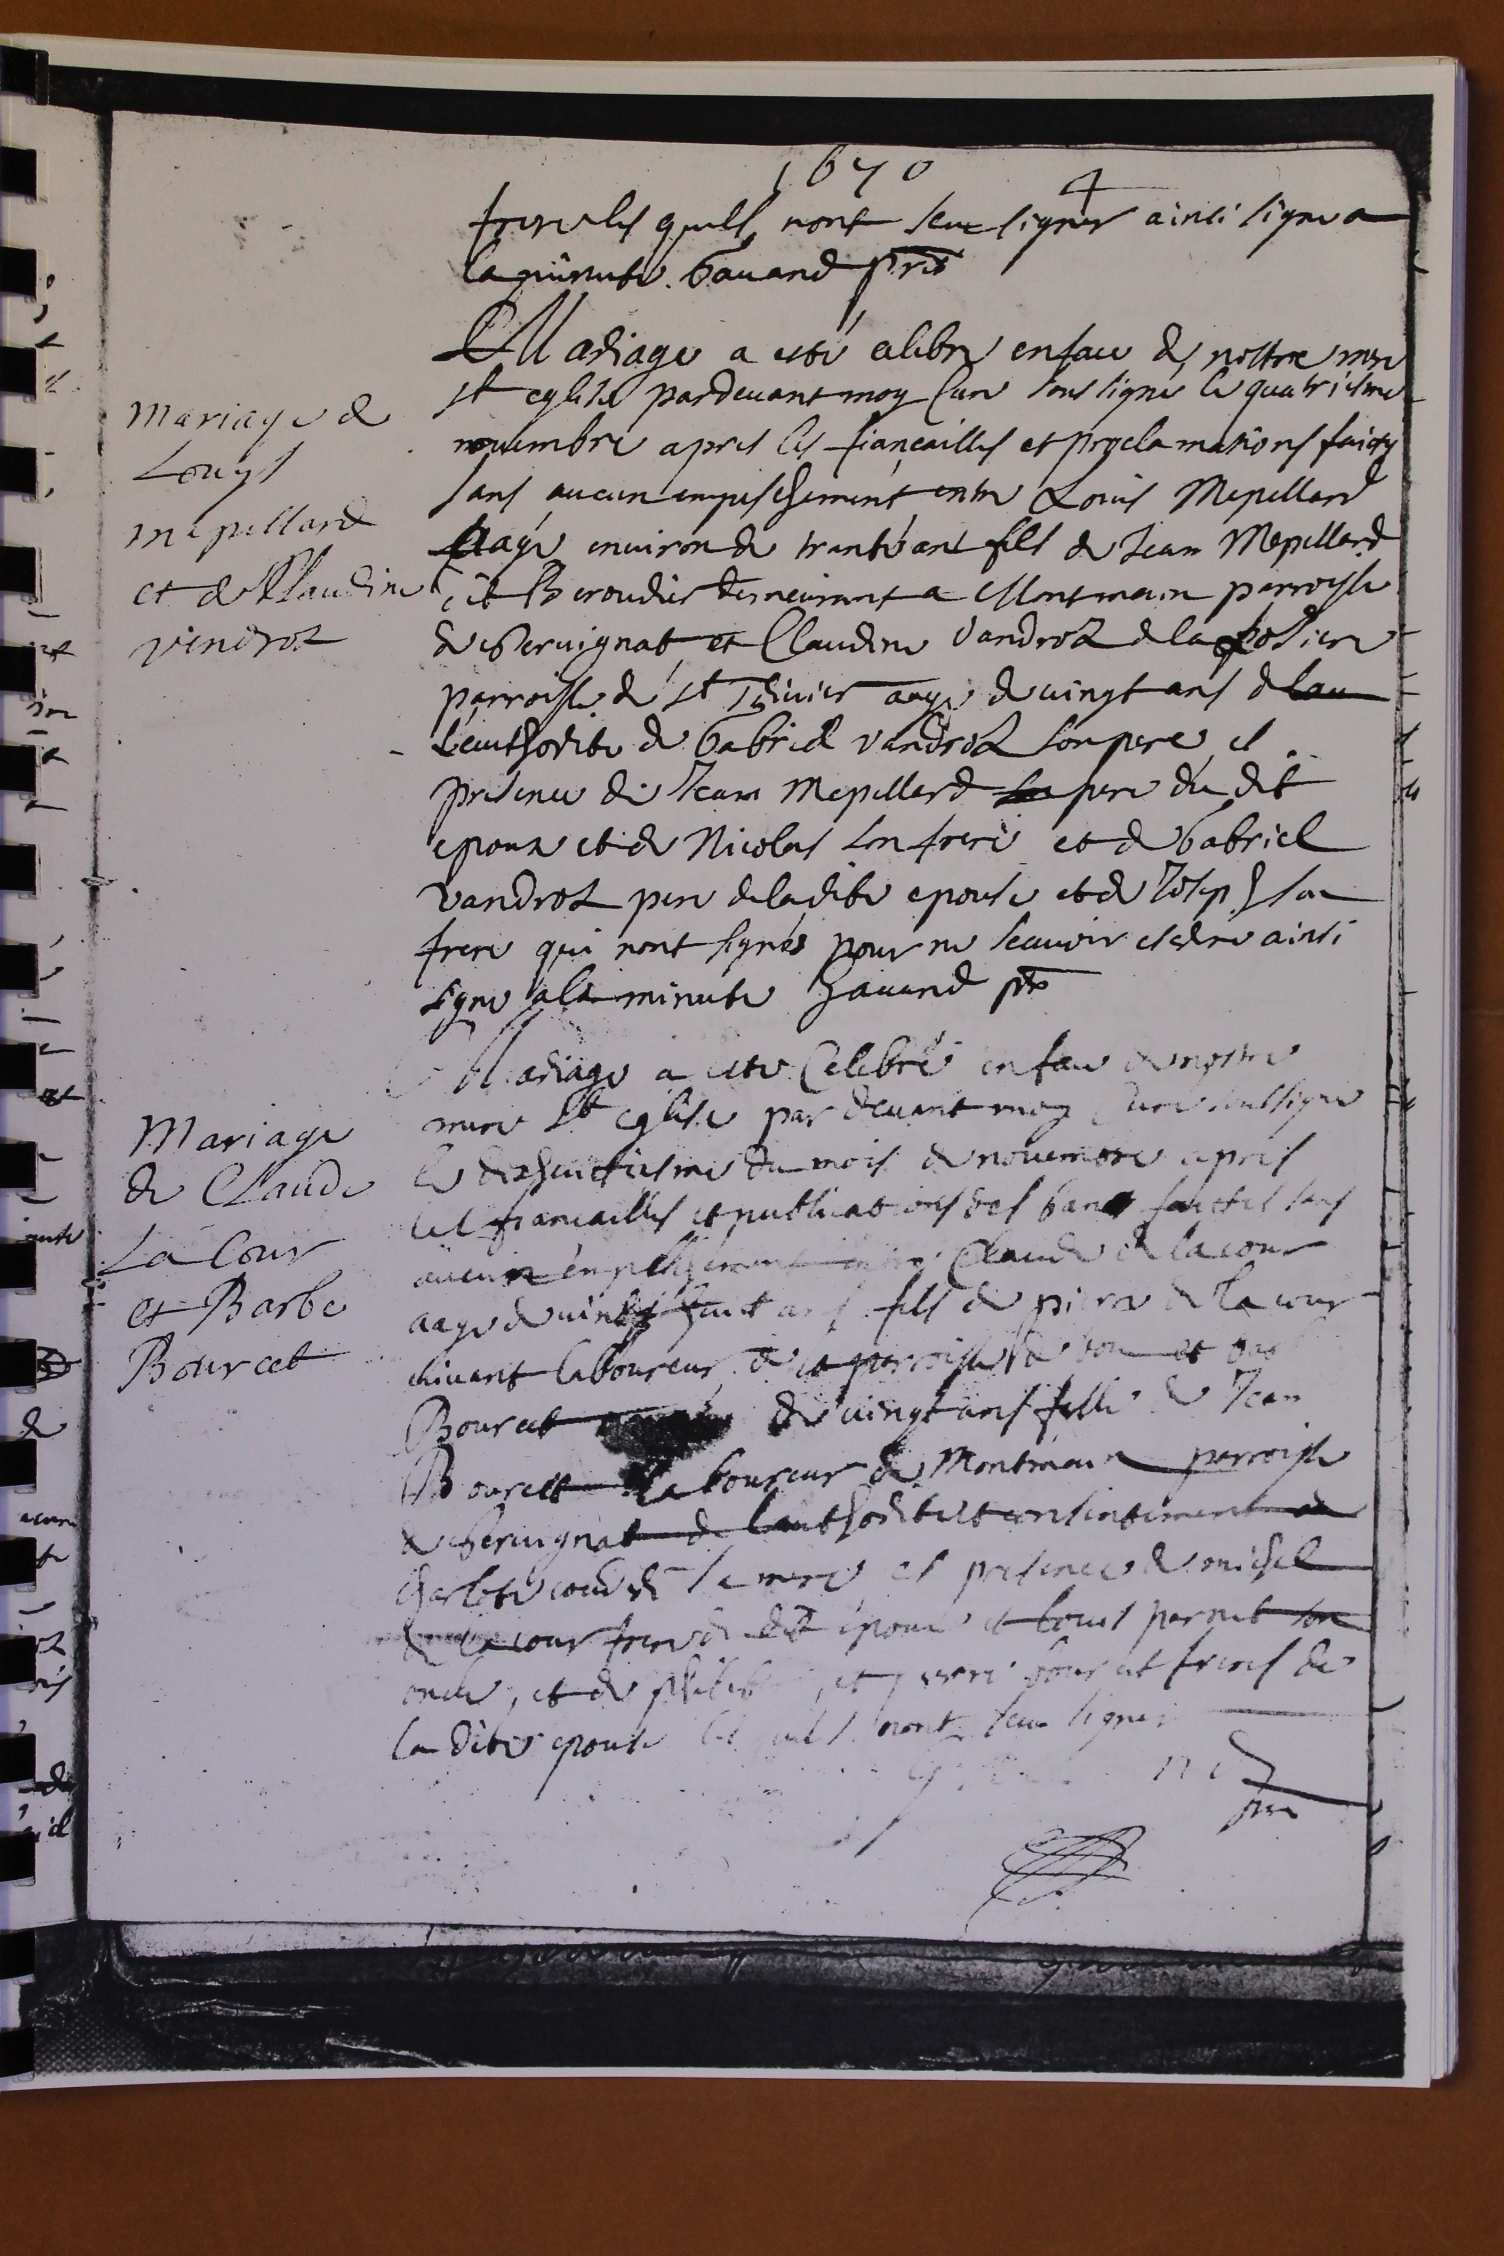 1670
4
frere les quels nont sceu signer ainsi signe a
la minute Gauand ptre
Mariage de
Louys
mepillard
et de Claudine
vendroz
Mariage a esté celebre en face de nostre mere
ste eglise pardevant moy Curé soussigne le quatriesme
novembre apres les fiançailles et proclamations faictes
sans aucun empeschement entre Louis Mepillard
aagé environ de trante ans fils de Jean Mepillard
dit Beroudier demeurant a Montmain parroisse
de Servignat et Claudine Vandroz de la
parroisse de st Trivier aage de vingt ans de
l'authorite de Gabriel vandroz son pere et
presence de Jean Mepillard pere du dit
epoux et de Nicolas son frere et de Gabriel
Vandroz pere de la dite epouse et de Joseph son
frere qui nont signés pour ne scauoir escrire ainsi
signe a la minute Gauand ptre
Mariage
de Claude
La Cour
et Barbe
Bourcet
Mariage a este Celebré en face de nostre
mere ste Eglise par devant moy Curé soussigne
le dixhuictiesme du mois de novembre apres
les fiancailles et publications des bans faictes sans
aucun empeschement entre Claude de la cour
aage de vingt huit ans fils de pierre de la cour
vivant laboureur de la parroisse de et
Bourcet de vingt ans fille de Jean
Bourcet laboureur de Montmain parroisse
de Servignat de lauthorite et consentement de
Charlote sa mere et presence de michel
de la cour frere du dit epoux et louis pernet son
oncle, et de philib et pierre bourcet freres de
la dite epouse les quels nont sceu signer